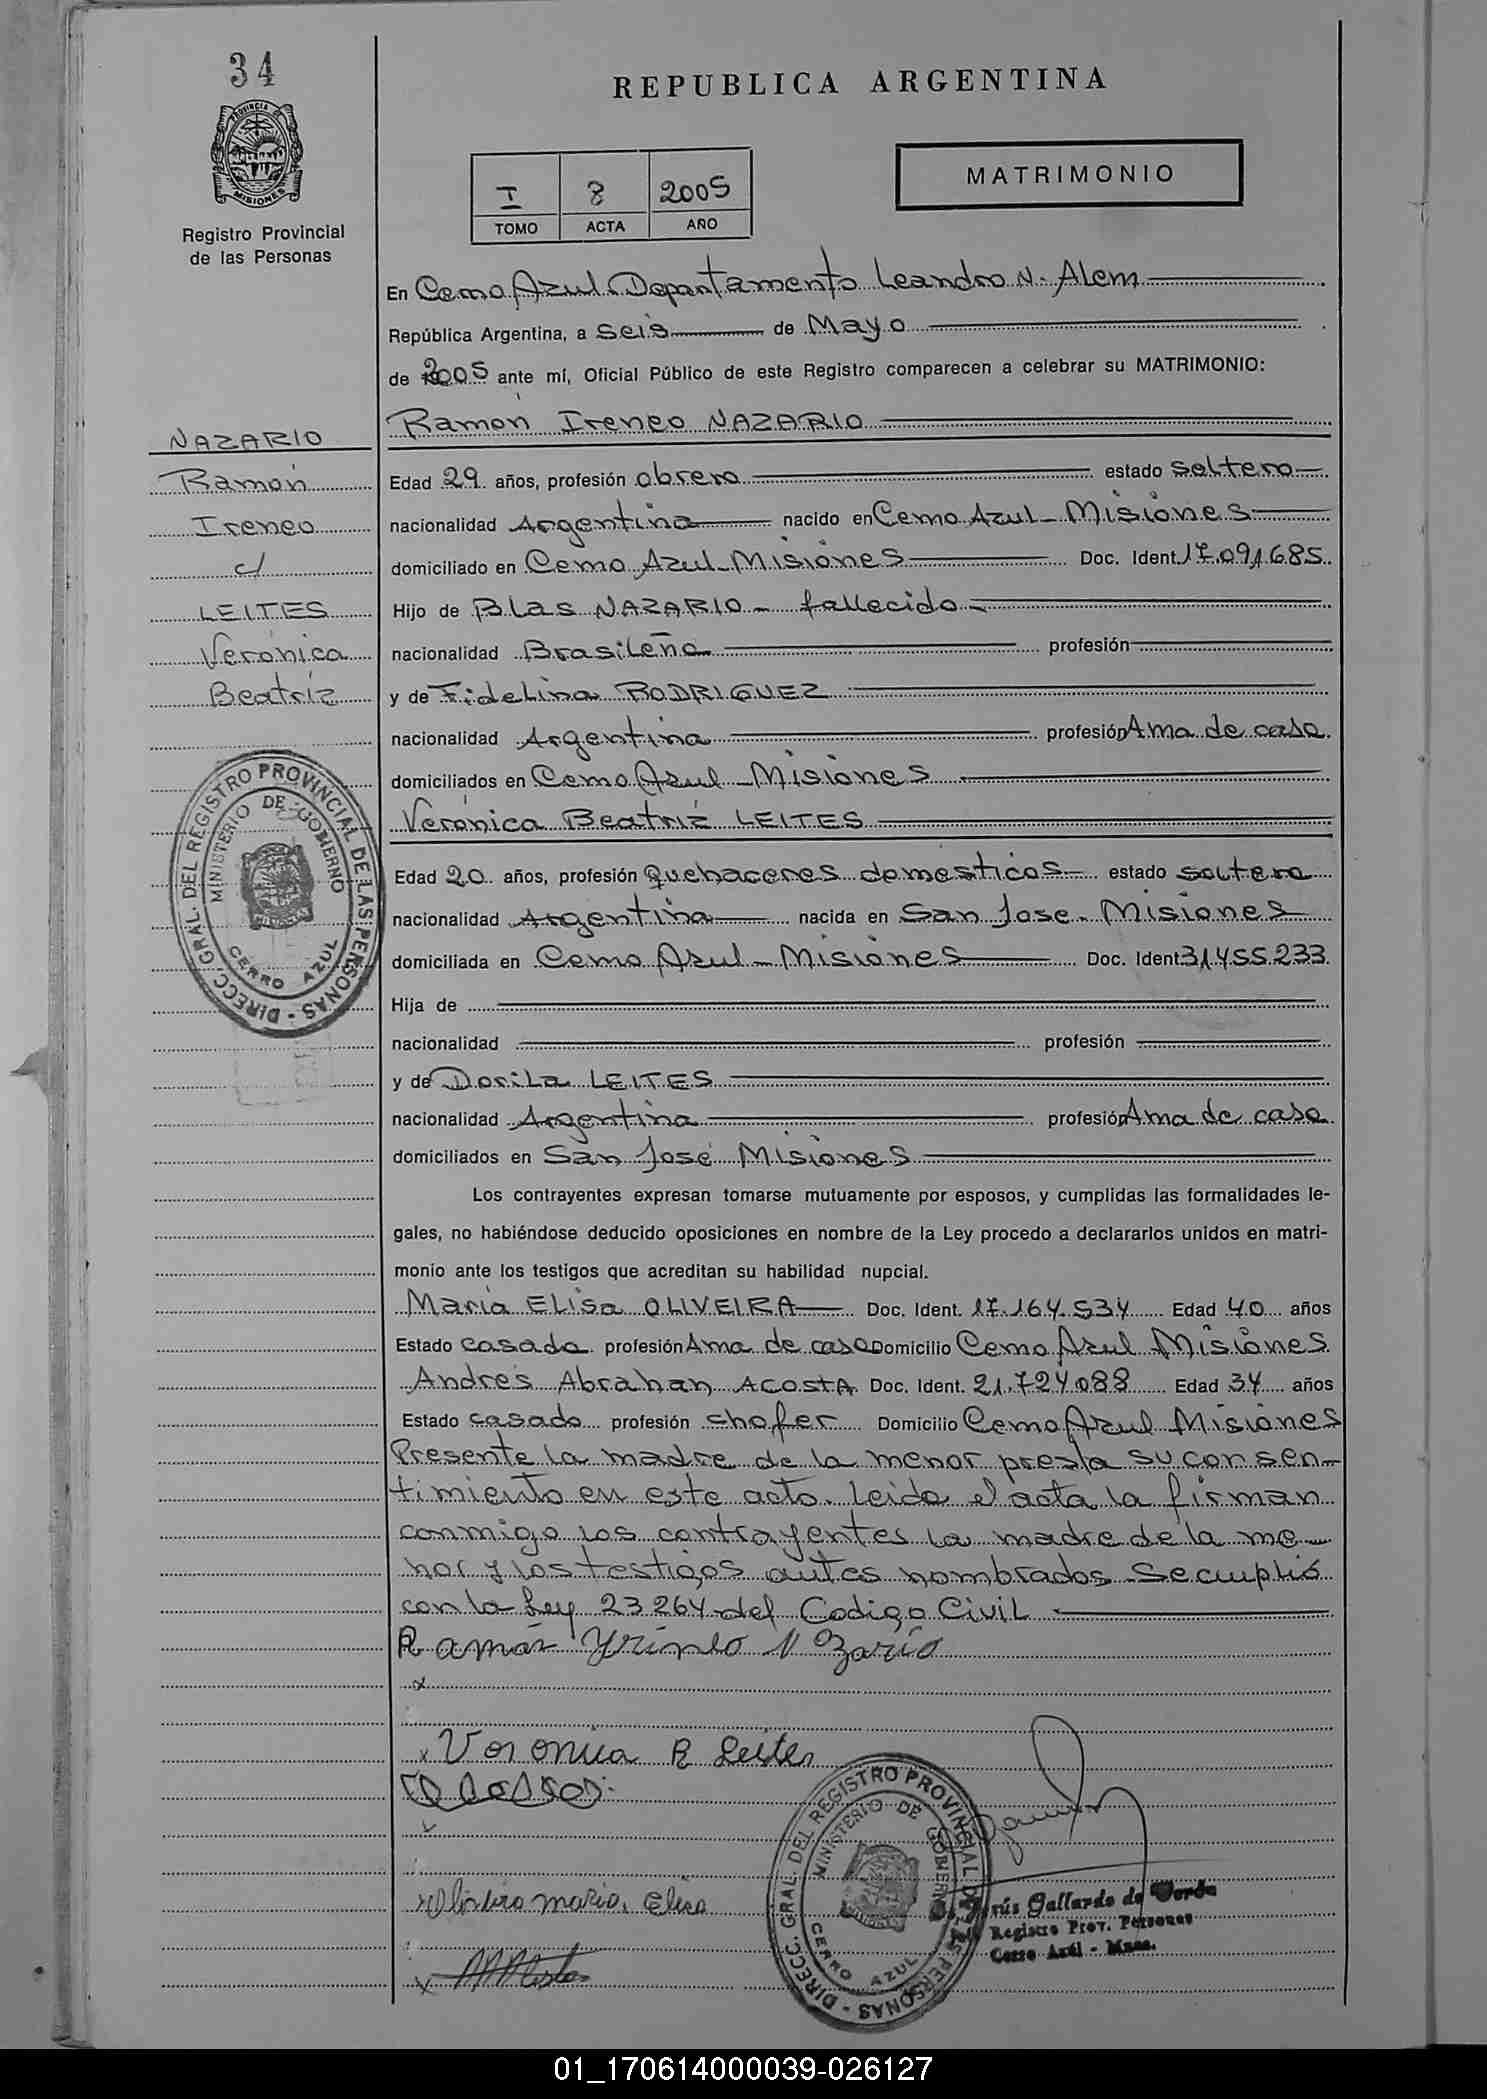 34
REPUBLICA ARGENTINA
PROVINCIA DE
MISIONES
Registro Provincial
de las Personas
I 8 2005
TOMO ACTA AÑO
MATRIMONIO
En Cerro Azul Departamento Leandro N. Alem
República Argentina, a seis de Mayo
de 2005 ante mí, Oficial Público de este Registro comparecen a celebrar su MATRIMONIO:
Ramón Ireneo NAZARIO
Edad 29 años, profesión obrero estado soltero
nacionalidad Argentina nacido en Cerro Azul - Misiones
domiciliado en Cerro Azul - Misiones Doc. Ident. 17.091.685
Hijo de Blas NAZARIO - fallecido -
nacionalidad Brasileña profesión
y de Fidelina RODRIGUEZ
nacionalidad Argentina profesión Ama de casa
domiciliados en Cerro Azul - Misiones
Verónica Beatríz LEITES
Edad 20 años, profesión Quehaceres domésticos estado soltera
nacionalidad Argentina nacida en San José - Misiones
domiciliada en Cerro Azul - Misiones Doc. Ident. 31.455.233
Hija de
nacionalidad profesión
y de Dorila LEITES
nacionalidad Argentina profesión Ama de casa
domiciliados en San José Misiones
Los contrayentes expresan tomarse mutuamente por esposos, y cumplidas las formalidades le-
gales, no habiéndose deducido oposiciones en nombre de la Ley procedo a declararlos unidos en matri-
monio ante los testigos que acreditan su habilidad nupcial.
María Elisa OLIVEIRA Doc. Ident. 17.164.534 Edad 40 años
Estado casada profesión Ama de casa Domicilio Cerro Azul Misiones
Andrés Abrahan ACOSTA Doc. Ident. 21.724.088 Edad 34 años
Estado casado profesión chofer Domicilio Cerro Azul Misiones
Presente la madre de la menor presta su consen-
timiento en este acto. Leida el acta la firman
conmigo los contrayentes la madre de la me-
nor y los testigos antes nombrados. Se cumplió
con la Ley 23264 del Codigo Civil
Ramón Yrineo Nazario
x
x Veronica B Leites
x maria Elisa
x
NAZARIO
Ramón
Ireneo
c/
LEITES
Verónica
Beatríz
DIRECC. GRAL. DEL REGISTRO PROVINCIAL DE LAS PERSONAS -
MINISTERIO DE GOBIERNO
CERRO AZUL
DIRECC. GRAL. DEL REGISTRO PROVINCIAL DE LAS PERSONAS -
MINISTERIO DE GOBIERNO
CERRO AZUL
Gallardo de
Registro Prov. Personas
Cerro Azul - Mnes.
01_170614000039-026127